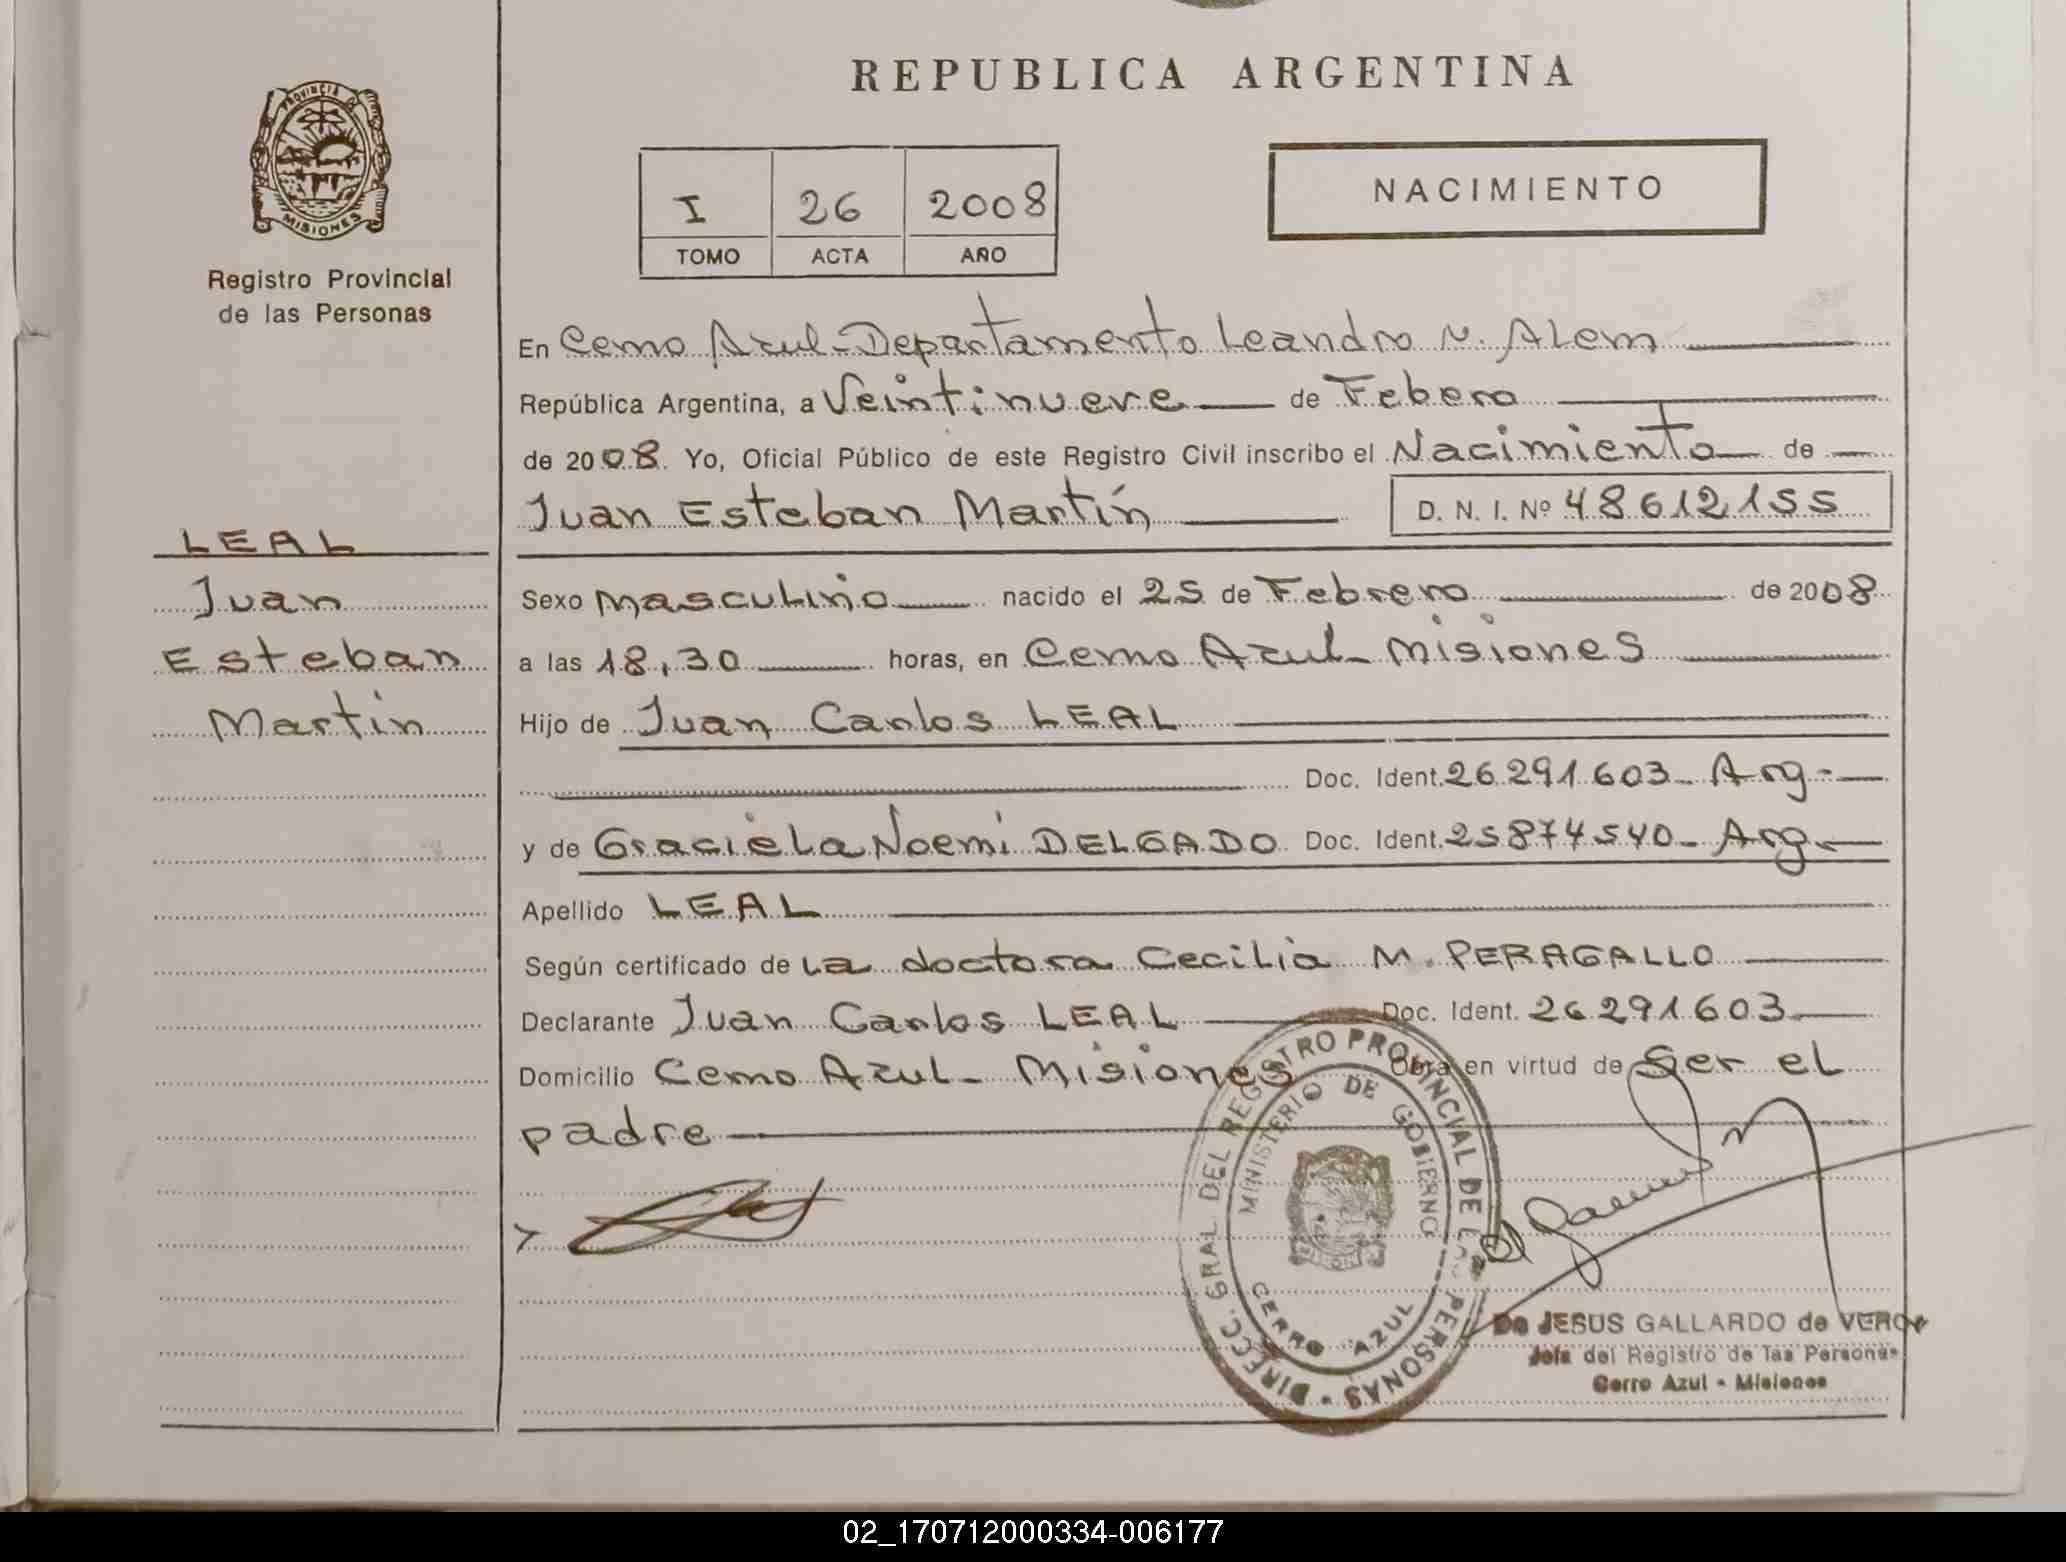 REPUBLICA ARGENTINA
PROVINCIA DE
MISIONES
Registro Provincial
de las Personas
I 26 2008
TOMO ACTA AÑO
NACIMIENTO
En Cerro Azul-Departamento Leandro N. Alem
República Argentina, a Veintinueve de Febero
de 2008. Yo, Oficial Público de este Registro Civil inscribo el Nacimiento de
Juan Esteban Martín D. N. I. Nº 48612155
LEAL
Juan
Esteban
Martin
Sexo Masculino nacido el 25 de Febrero de 2008
a las 18,30 horas, en Cerro Azul- Misiones
Hijo de Juan Carlos LEAL
Doc. Ident. 26.291.603- Arg-
y de Graciela Noemi DELGADO Doc. Ident. 25874540- Arg-
Apellido LEAL
Según certificado de La doctora Cecilia M. PERAGALLO
Declarante Juan Carlos LEAL Doc. Ident. 26291603
Domicilio Cerro Azul- Misiones Obra en virtud de Ser el
padre
DIRECC. GRAL. DEL REGISTRO PROVINCIAL DE LAS PERSONAS
MINISTERIO DE GOBIERNO
CERRO AZUL
De JESUS GALLARDO de
Jefa del Registro de las Personas
Cerro Azul - Misiones
02_170712000334-006177